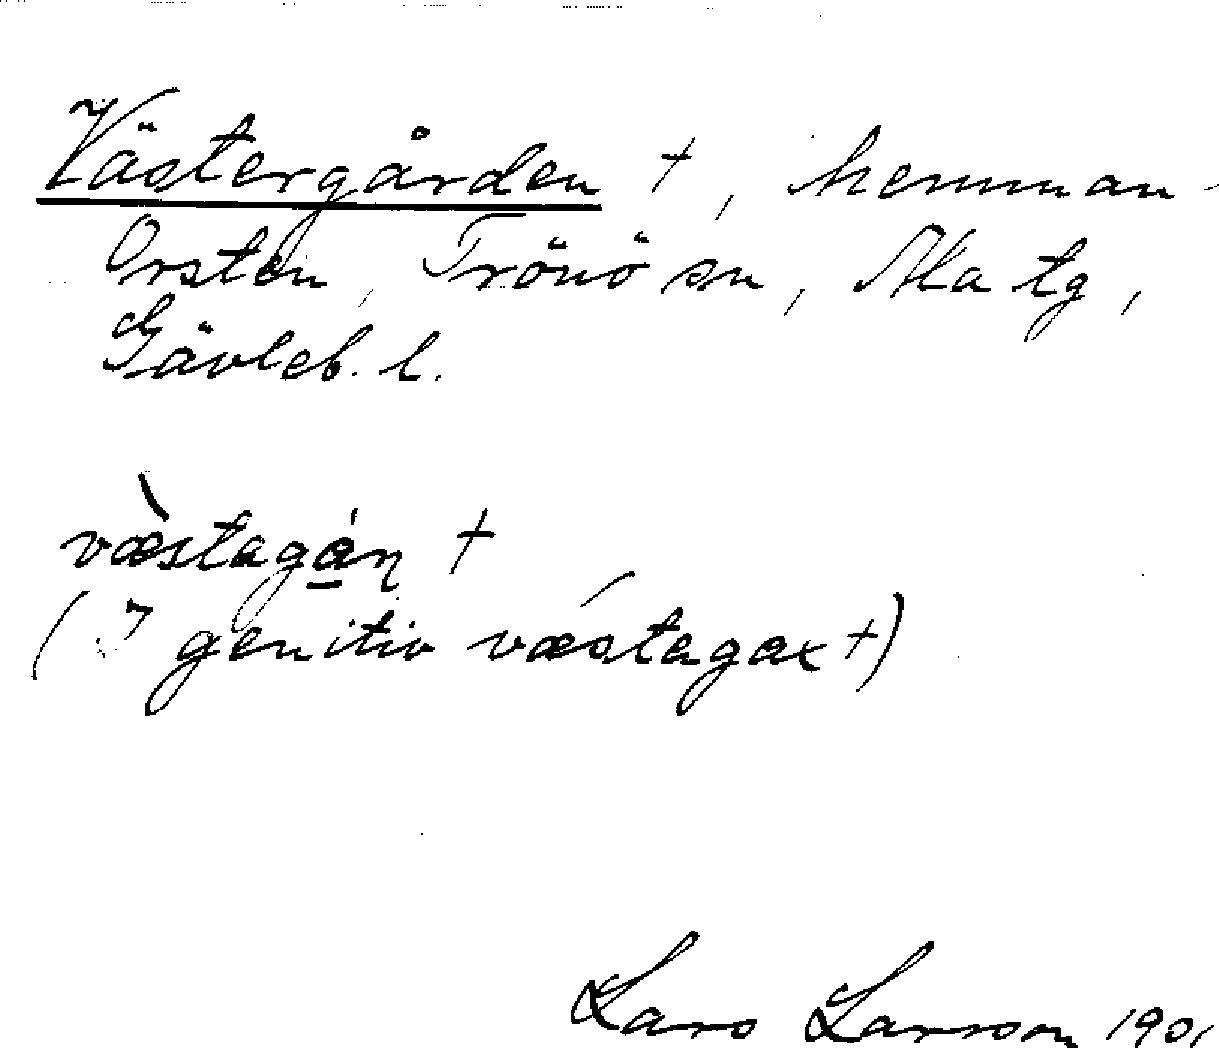 Västergården +, hemman
Orsten, Trönö sn, Ala tg,
Gävleb. l.
væ̀stagá̱ṇ +
(I genitiv væstagax +)
Lars Larsson 190